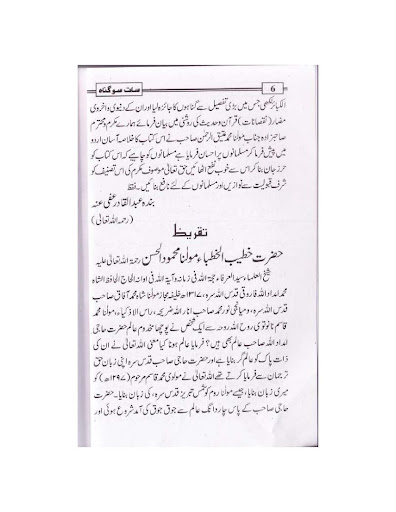 سات سو گناہ
6
الکبائر لکھی جس میں بڑی تفصیل سے گناہوں کا جائزہ لیا اور ان کے دنیوی و اخروی
مضار (نقصانات) قرآن و حدیث کی روشنی میں بیان فرمائے ہمارے مکرم و محترم
صاحبزادہ جناب مولانا محمد عتیق الرحمٰن صاحب نے اس کتاب کا خلاصہ آسان اردو
میں پیش فرما کر مسلمانوں پر احسان فرمایا ہے مسلمانوں کو چاہیے کہ اس کتاب کو
حرز جان بنا کر اس سے خوب نفع اٹھائیں حق تعالیٰ موصوف مکرم کی اس تصنیف کو
شرف قبولیت سے نوازیں اور مسلمانوں کے لئے نافع بنائیں۔ فقط
بندہ عبدالقادر عفی عنہ
(رحمہ اللہ تعالیٰ)
تقریظ
حضرت خطیب الخطباء مولانا محمود الحسن رحمۃ اللہ تعالیٰ علیہ
شیخ العلماء سید العرفاء حجۃ اللہ فی زمانہ و آیۃ اللہ فی اوانہ الحاج الحافظ الشاہ
محمد امداد اللہ فاروقی قدس اللہ سرہ، ۱۳۱۷ھ خلیفہ مجاز مولانا شاہ محمد آفاق صاحب
قدس اللہ سرہ، ومیانجی نور محمد صاحب انار اللہ ضریحہ، راس الاذکیاء، مولانا محمد
قاسم نانوتوی روح اللہ روحہ سے ایک شخص نے پوچھا مخدوم عالم حضرت حاجی
امداد اللہ صاحب عالم بھی ہیں؟ فرمایا عالم ہونا کیا معنی اللہ تعالیٰ نے ان کی
ذات پاک کو عالم گر بنایا ہے اور حضرت حاجی صاحب قدس سرہ اپنی زبان حق
ترجمان سے فرمایا کرتے تھے اللہ تعالیٰ نے مولوی محمد قاسم مرحوم (۱۲۹۷ھ) کو
میری زبان بنایا، جیسے مولانا روم کو شمس تبریز قدس سرہ، کی زبان بنایا۔ حضرت
حاجی صاحب کے پاس چار دانگ عالم سے جوق جوق کی آمد شروع ہوئی اور